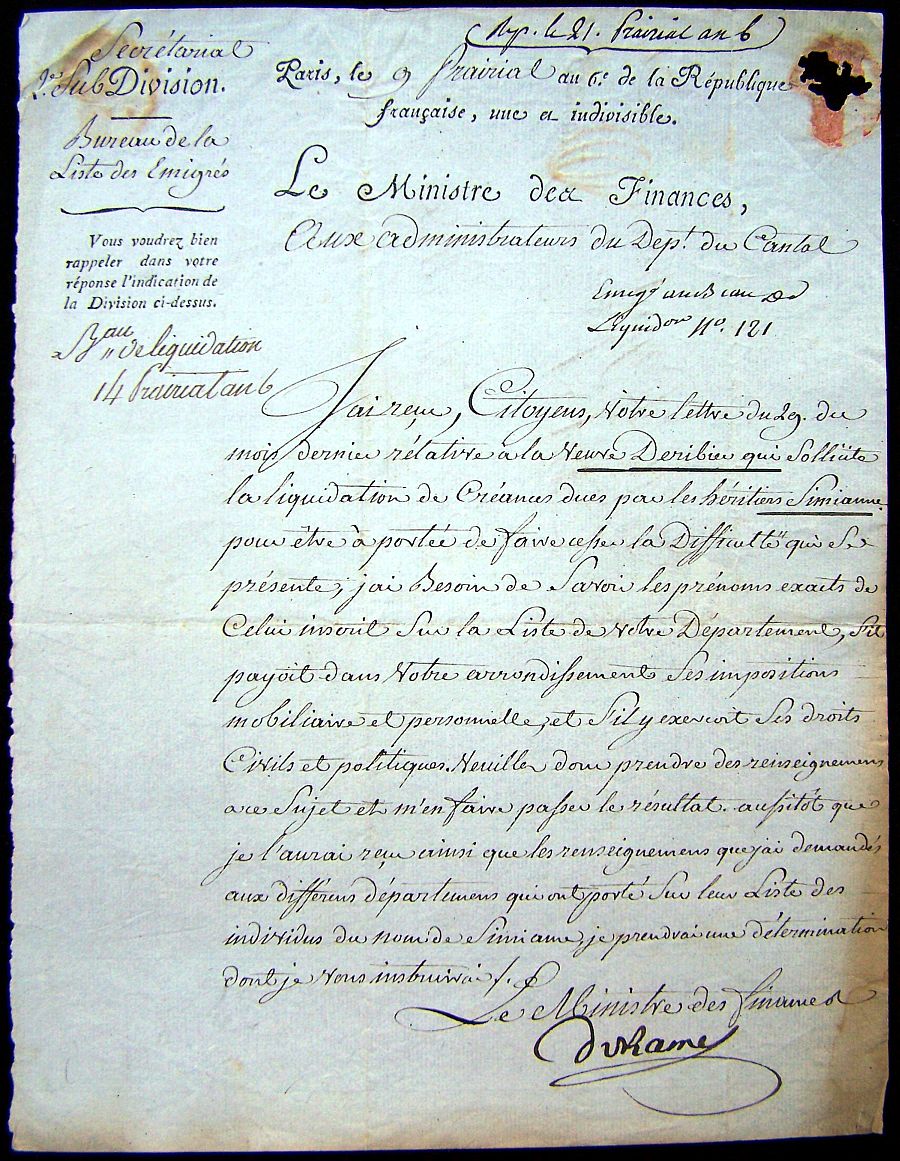 Rép. le 21. Prairial an 6
Secrétariat
2.e SubDivision.
Bureau de la
Liste des Emigrés
Vous voudrez bien
rappeler dans votre
réponse l'indication de
la Division ci-dessus.
B.au de liquidation
14 Prairial an 6
Paris, le 9 Prairial an 6.e de la République
française, une et indivisible.
Le Ministre des Finances,
Aux administrateurs du Dep.t du Cantal
N.o 121
J'ai reçu, Citoyens, Votre lettre du 29. du
mois dernier rélative a la Veuve Deribier qui Sollicite
la liquidation de Créances dues par les héritiers Simianne.
pour être à portée de faire cesser la Difficulté qui Se
présente, j'ai Besoin de Savoir les prénoms exacts de
Celui inscrit Sur la Liste de Votre Département, S'il
payoit dans Votre arrondissement Ses impositions
mobiliaire et personnelle, et S'il y exercoit Ses droits
Civils et politiques. Veuillez donc prendre des renseignemens
a ce Sujet et m'en faire passer le résultat. aussitôt que
je l'aurai reçu ainsi que les renseignemens que j'ai demandés
aux differens départemens qui ont porté Sur leur Liste des
individus du nom de Simiane, je prendrai une détermination
dont je Vous instruirai
Le Ministre des finances